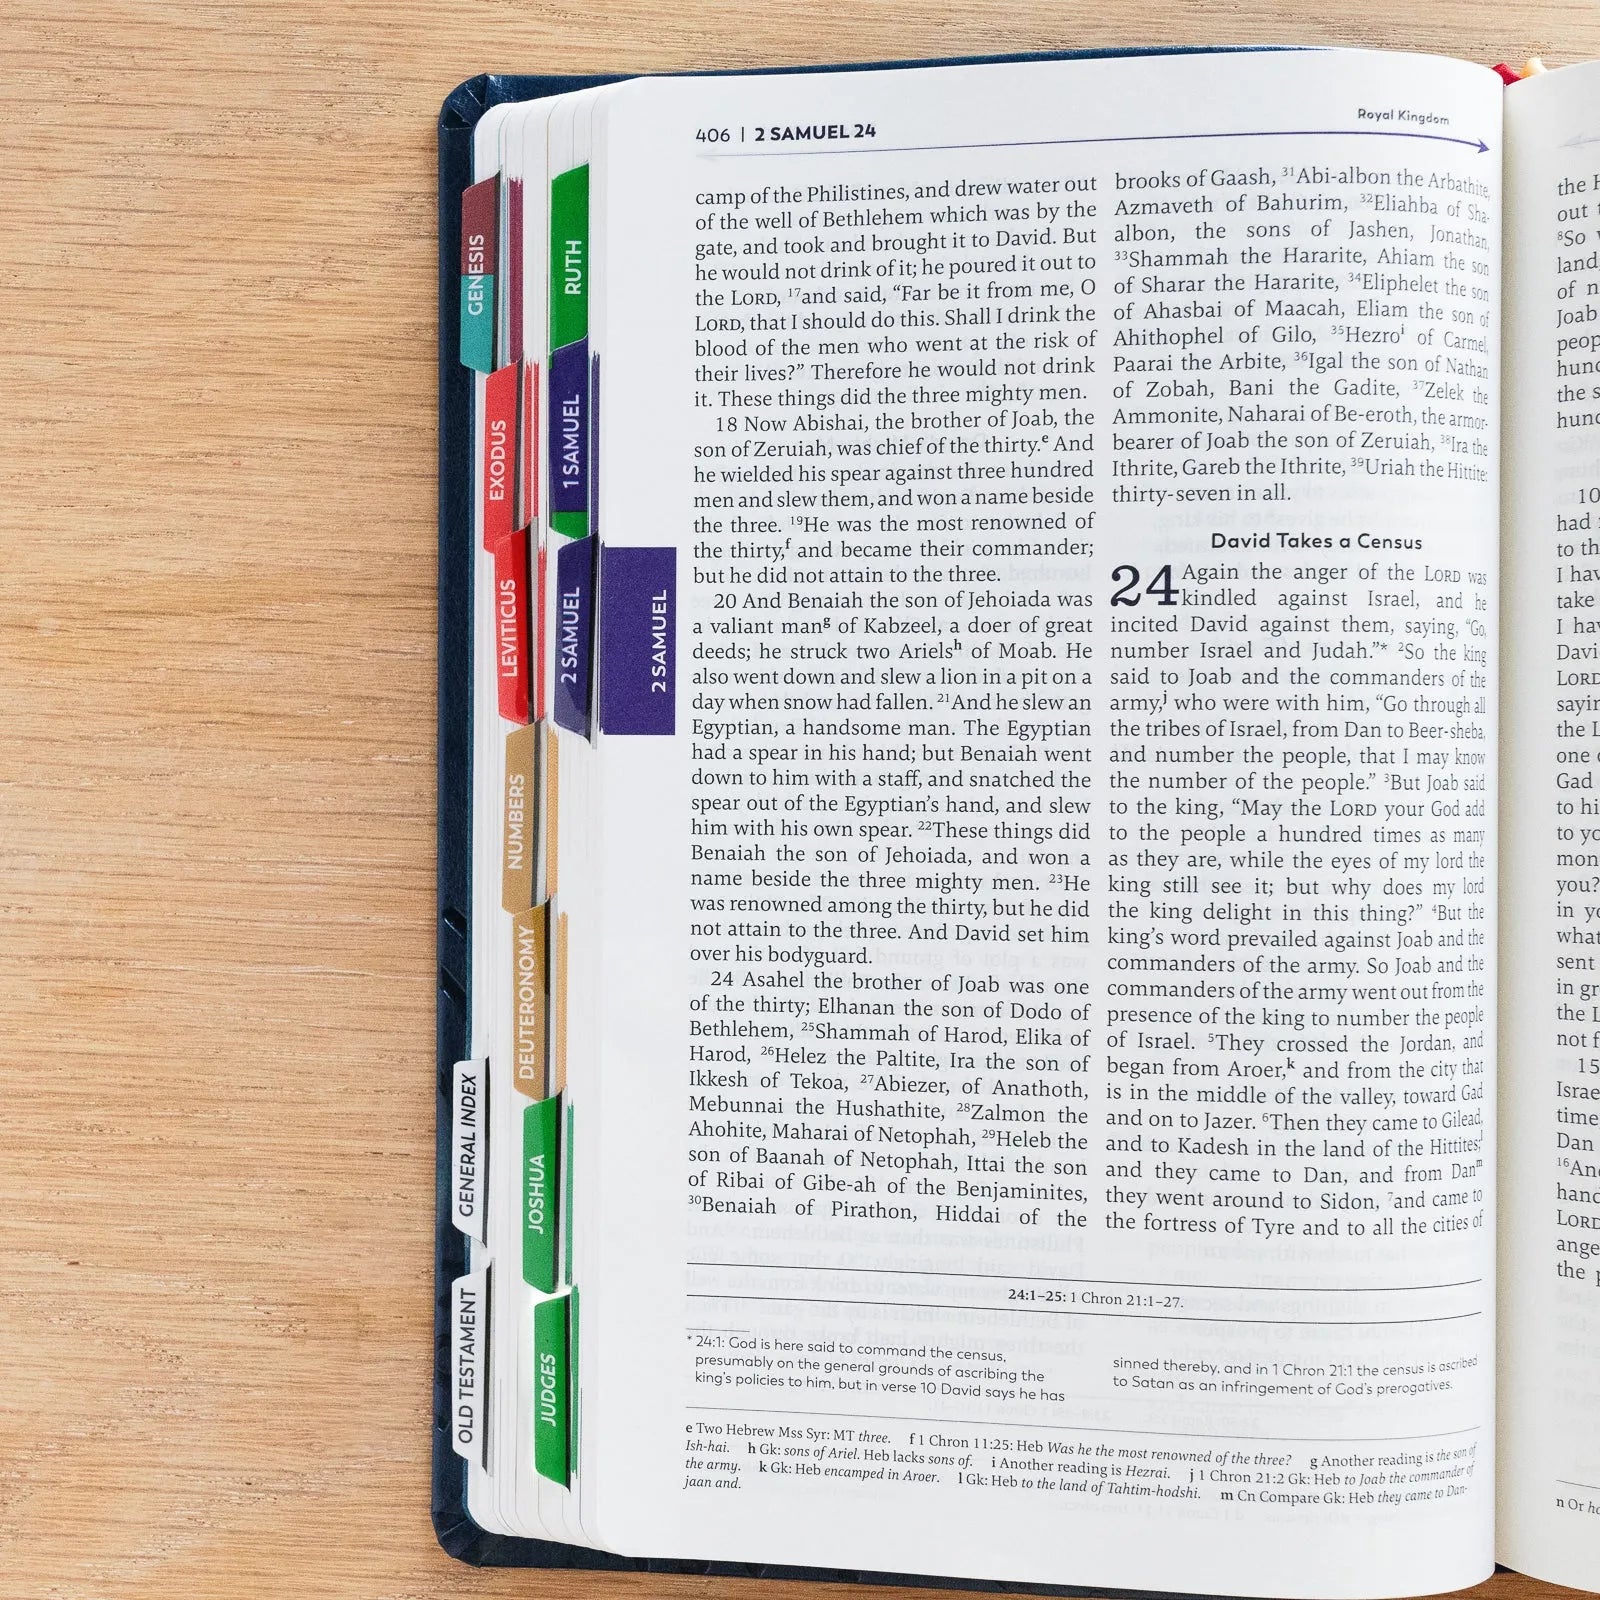 406 | 2 SAMUEL 24
Royal Kingdom
camp of the Philistines, and drew water out
of the well of Bethlehem which was by the
gate, and took and brought it to David. But
he would not drink of it; he poured it out to
the LORD, ¹⁷and said, “Far be it from me, O
LORD, that I should do this. Shall I drink the
blood of the men who went at the risk of
their lives?” Therefore he would not drink
it. These things did the three mighty men.
18 Now Abishai, the brother of Joab, the
son of Zeruiah, was chief of the thirty.ᵉ And
he wielded his spear against three hundred
men and slew them, and won a name beside
the three. ¹⁹He was the most renowned of
the thirty,ᶠ and became their commander;
but he did not attain to the three.
20 And Benaiah the son of Jehoiada was
a valiant manᵍ of Kabzeel, a doer of great
deeds; he struck two Arielsʰ of Moab. He
also went down and slew a lion in a pit on a
day when snow had fallen. ²¹And he slew an
Egyptian, a handsome man. The Egyptian
had a spear in his hand; but Benaiah went
down to him with a staff, and snatched the
spear out of the Egyptian’s hand, and slew
him with his own spear. ²²These things did
Benaiah the son of Jehoiada, and won a
name beside the three mighty men. ²³He
was renowned among the thirty, but he did
not attain to the three. And David set him
over his bodyguard.
24 Asahel the brother of Joab was one
of the thirty; Elhanan the son of Dodo of
Bethlehem, ²⁵Shammah of Harod, Elika of
Harod, ²⁶Helez the Paltite, Ira the son of
Ikkesh of Tekoa, ²⁷Abiezer, of Anathoth,
Mebunnai the Hushathite, ²⁸Zalmon the
Ahohite, Maharai of Netophah, ²⁹Heleb the
son of Baanah of Netophah, Ittai the son
of Ribai of Gibe-ah of the Benjaminites,
³⁰Benaiah of Pirathon, Hiddai of the
brooks of Gaash, ³¹Abi-albon the Arbathite,
Azmaveth of Bahurim, ³²Eliahba of Sha-
albon, the sons of Jashen, Jonathan,
³³Shammah the Hararite, Ahiam the son
of Sharar the Hararite, ³⁴Eliphelet the son
of Ahasbai of Maacah, Eliam the son of
Ahithophel of Gilo, ³⁵Hezroⁱ of Carmel,
Paarai the Arbite, ³⁶Igal the son of Nathan
of Zobah, Bani the Gadite, ³⁷Zelek the
Ammonite, Naharai of Be-eroth, the armor-
bearer of Joab the son of Zeruiah, ³⁸Ira the
Ithrite, Gareb the Ithrite, ³⁹Uriah the Hittite:
thirty-seven in all.
David Takes a Census
24 Again the anger of the LORD was
kindled against Israel, and he
incited David against them, saying, “Go,
number Israel and Judah.”* ²So the king
said to Joab and the commanders of the
army,ʲ who were with him, “Go through all
the tribes of Israel, from Dan to Beer-sheba,
and number the people, that I may know
the number of the people.” ³But Joab said
to the king, “May the LORD your God add
to the people a hundred times as many
as they are, while the eyes of my lord the
king still see it; but why does my lord
the king delight in this thing?” ⁴But the
king’s word prevailed against Joab and the
commanders of the army. So Joab and the
commanders of the army went out from the
presence of the king to number the people
of Israel. ⁵They crossed the Jordan, and
began from Aroer,ᵏ and from the city that
is in the middle of the valley, toward Gad
and on to Jazer. ⁶Then they came to Gilead,
and to Kadesh in the land of the Hittites;ˡ
and they came to Dan, and from Danᵐ
they went around to Sidon, ⁷and came to
the fortress of Tyre and to all the cities of
24:1–25: 1 Chron 21:1–27.
* 24:1: God is here said to command the census,
presumably on the general grounds of ascribing the
king’s policies to him, but in verse 10 David says he has
sinned thereby, and in 1 Chron 21:1 the census is ascribed
to Satan as an infringement of God’s prerogatives.
e Two Hebrew Mss Syr: MT three. f 1 Chron 11:25: Heb Was he the most renowned of the three? g Another reading is the son of
Ish-hai. h Gk: sons of Ariel. Heb lacks sons of. i Another reading is Hezrai. j 1 Chron 21:2 Gk: Heb to Joab the commander of
the army. k Gk: Heb encamped in Aroer. l Gk: Heb to the land of Tahtim-hodshi. m Cn Compare Gk: Heb they came to Dan-
jaan and.
GENESIS
EXODUS
LEVITICUS
NUMBERS
DEUTERONOMY
JOSHUA
JUDGES
RUTH
1 SAMUEL
2 SAMUEL
2 SAMUEL
GENERAL INDEX
OLD TESTAMENT